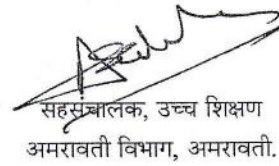 सहसंचालक, उच्च शिक्षण
अमरावती विभाग, अमरावती.